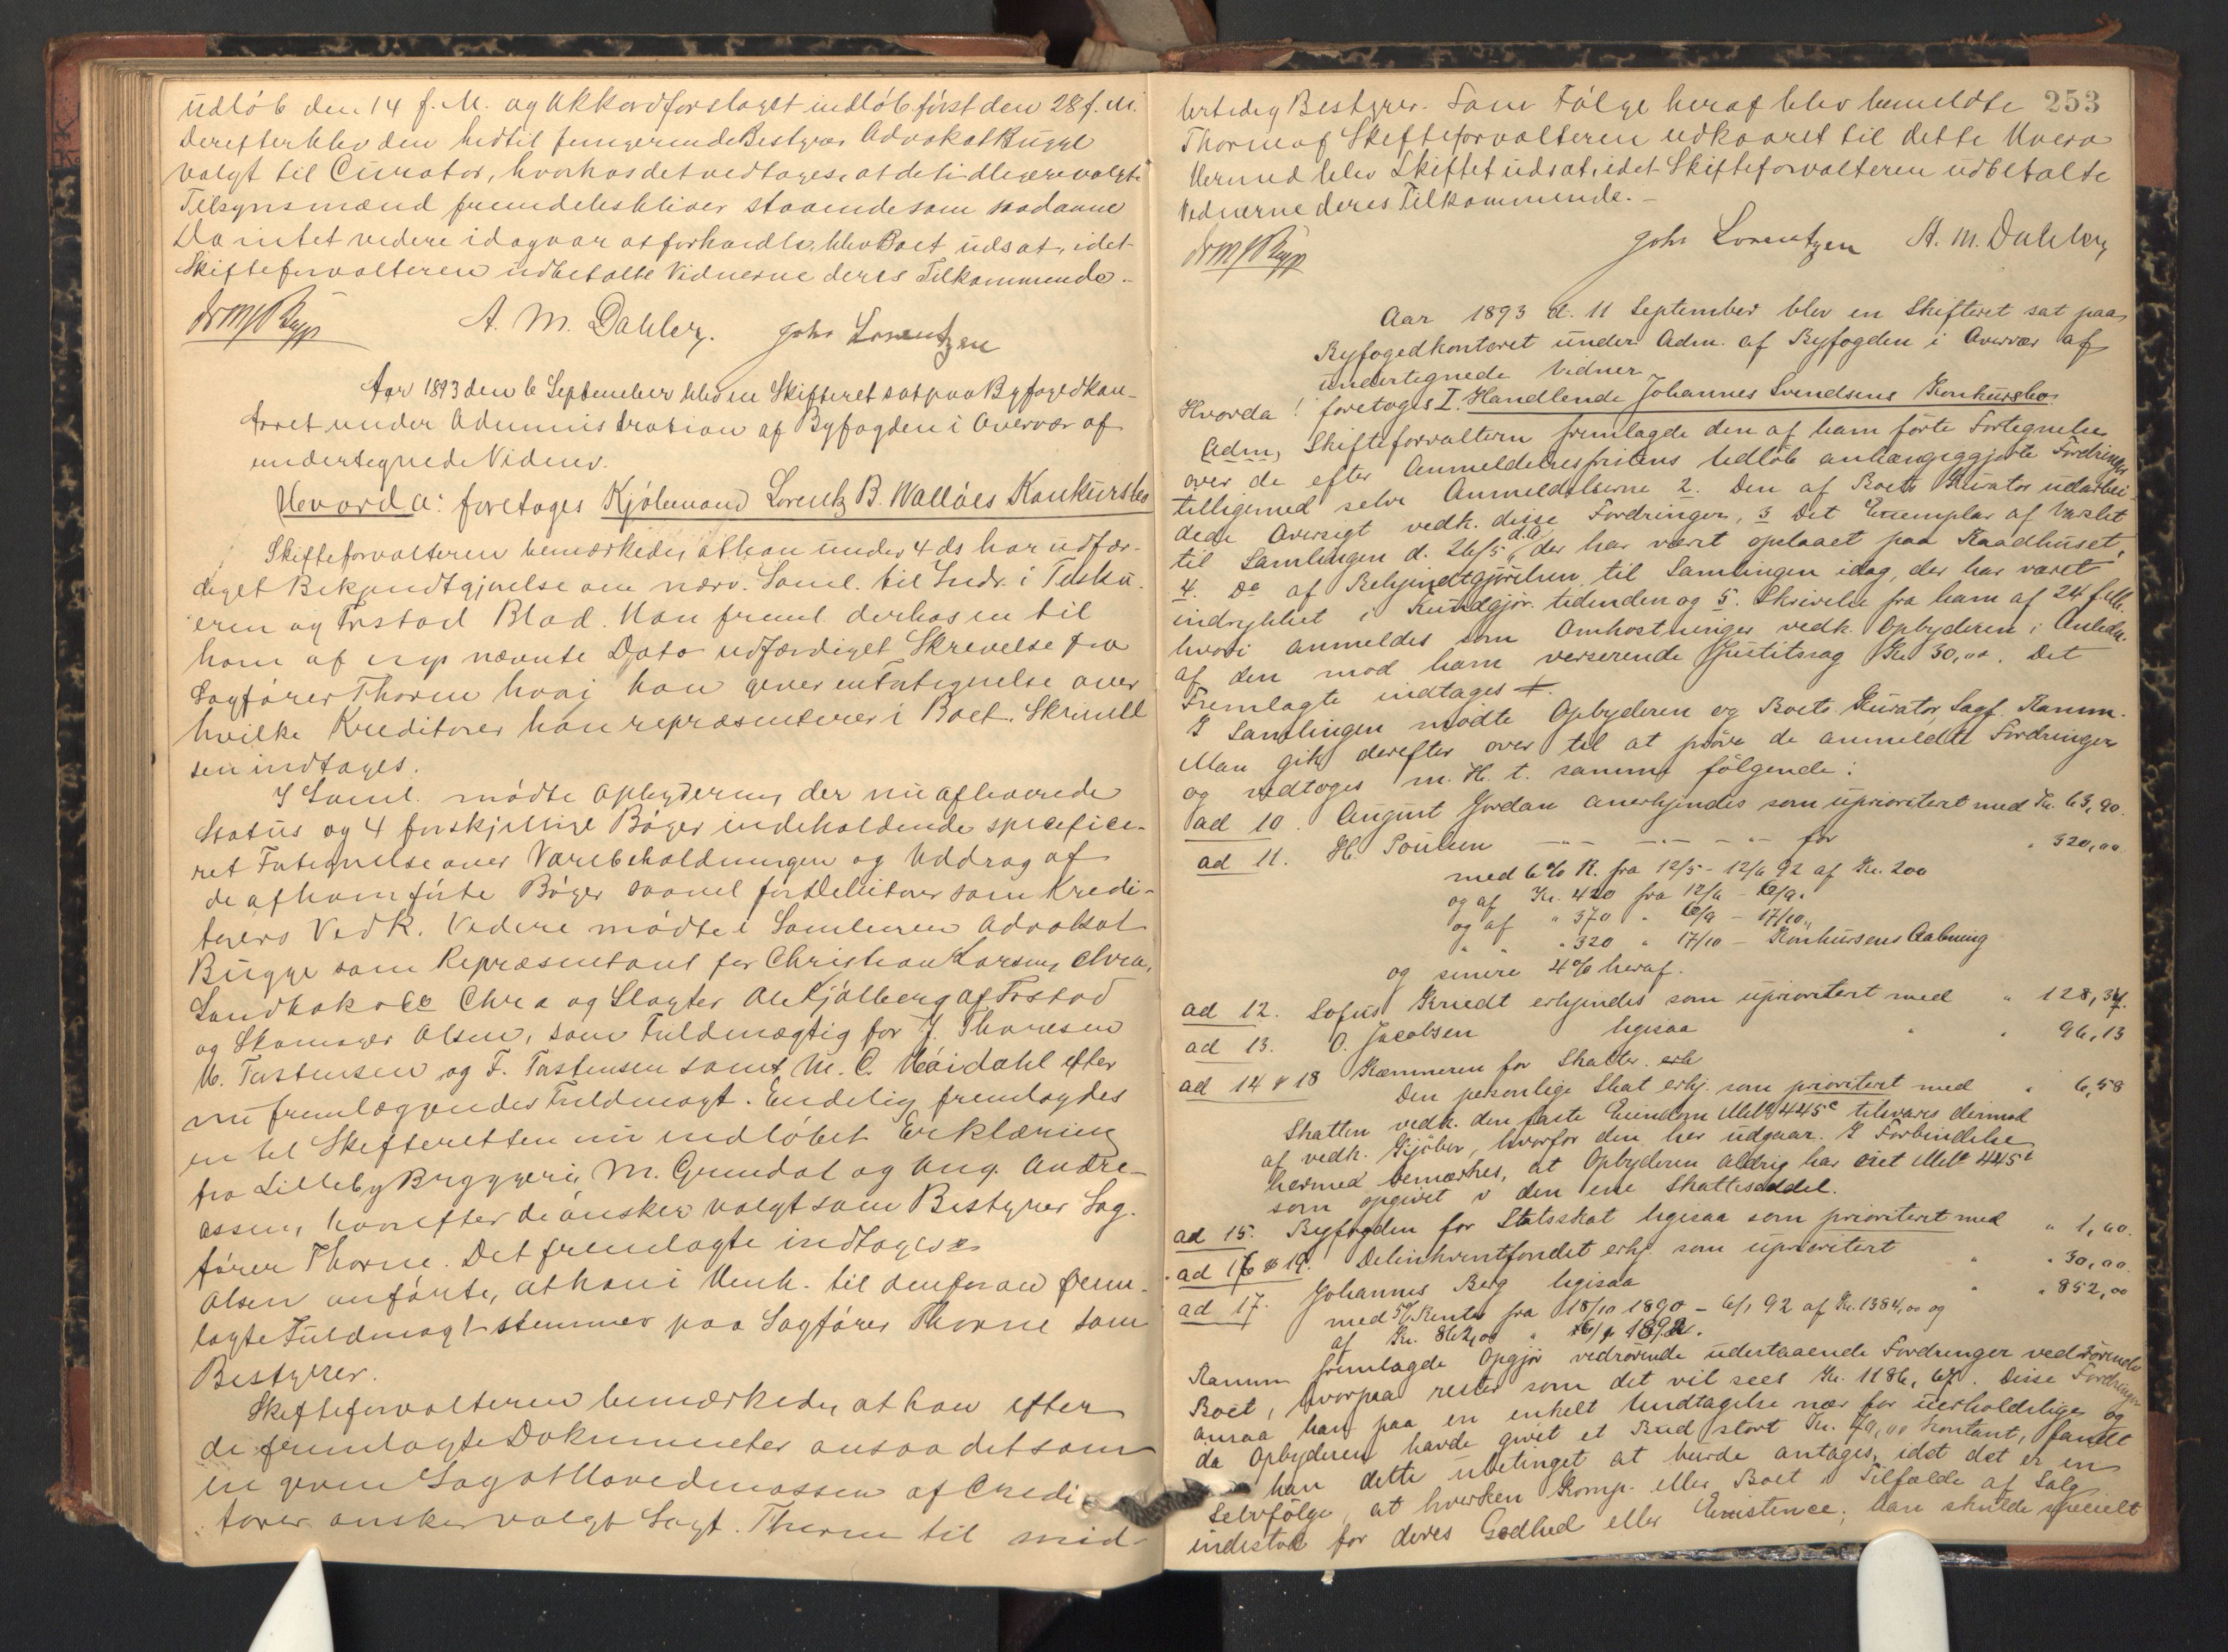 udløb den 14 f. M. og Akkordforslaget indløb først den 28 f. M.
Derefter blev den hidtil fungerende Bestyrer Advokat Bugge
valgt til Curator, hvorhos det vedtoges, at de tidligere valgte
Tilsynsmænd fremdeles bliver staaende som saadanne
Da intet videre idag var at forhandle, blev Boet udsat, idet
Skifteforvalteren udbetalte Vidnerne deres Tilkommende.
A. M. Dahler. Johs Lorentzen
Aar 1893 den 6 September blev en Skifteret sat paa Byfogedkon-
toret under Administration af Byfogden i Overvær af
undertegnede Vidner.
Hvorda: foretoges Kjøbmand Lorentz B. Walløes Konkursbo
Skifteforvalteren bemærkede, at han under 4 ds har udfær-
diget Bekjendtgjørelse om nærv. Saml. til Indr. i
og Frstad Blad. Han freml. derhos en til
ham af nævnte Dato udfærdiget Skrivelse fra
Sagfører Thorne hvori han giver en Fortegnelse over
hvilke Kreditorer han repræsenterer i Boet. Skrivel-
sen indtages.
I Saml. mødte Opbyderen, der nu afleverede
Status og 4 forskjellige Bøger indeholdende specifice-
ret Fortegnelse over Varebeholdningen og Uddrag af
de af ham førte Bøger saavel for Debitorer som Kredi-
torers Vedk. Videre mødte i Samlingen Advokat
Bugge som Repræsentant for Christian Larsen, Chra,
Sandbak & Co Chra og Slagter Ole Kjølberg af Frstad
og Skomager Olsen, som Fuldmægtig for J. Thoresen
M. Torstensen og F. Torstensen samt M. C. Høidahl efter
nu fremlæggendes Fuldmagt. Endelig fremlagdes
en til Skifteretten nu indløbet Erklæring
fra Lilleby Bryggeri, M. Grundal og Aug. Andre-
assen, hvorefter de ønsker valgt som Bestyrer Sag-
fører Thorne. Det fremlagte indtages
Olsen anførte, at han i Henh. til den foran frem-
lagte Fuldmagt stemmer paa Sagfører Thorne som
Bestyrer.
Skifteforvalteren bemærkede, at han efter
de fremlagte Dokumenter ansaa det som
en given Sag at Hovedmassen af Credi-
torer ønsker valgt Sagf. Thorne til mid-
253
lertidig Bestyrer. Som Følge heraf blev bemeldte
Thorne af Skifteforvalteren udkaaret til dette Hverv
Hermed blev Skiftet udsat, idet Skifteforvalteren udbetalte
Vidnerne deres Tilkommende.
Johs Lorentzen A. M. Dahler
Aar 1893 d. 11 September blev en Skifteret sat paa
Byfogedkontoret under Adm. af Byfogden i Overvær af
undertegnede Vidner
Hvorda! foretoges I. Handlende Johannes Svendsens Konkursbo.
Adm, Skifteforvaltern fremlagde den af ham førte Fortegnelse
over de efter Anmeldelsesfristens Udløb anhængiggjorte Fordringer
tilligemed selve Anmeldelserne 2. Den af Boets Kurator udarbei-
dede Oversigt vedk. disse Fordringer, 3 Det Exemplar af Varslet
til Samlingen d. 26/5 d.A. der har vært opslaaet paa Raadhuset,
4. Do af Bekjendtgjørelsen til Samlingen idag, der har været
indrykket i Kundgjør. tidenden og 5. Skrivelse fra ham af 24 f. M.
hvori anmeldes som Omkostninger vedk. Opbyderen i Anledn.
af den mod ham verserende Justitssag Kr 30,00. Det
Fremlagte indtages
I Samlingen mødte Opbyderen og Boets Kurator, Sagf. Ramm.
Man gik derefter over til at prøve de anmeldte Fordringer
og vedtoges m. H. t. samme følgende:
ad 10. August Jordan anerkjendes som uprioritert med Kr. 63,90.
ad 11. H. Poulsen -"- -"- -"- for " 320,00
med 6% R. fra 12/5 - 12/6 92 af Kr. 200
og af Kr. 420 fra 12/6 - 10/9.
og af " 370 " 10/9 - 17/10
" " " 320 " 17/10 - Konkursens Aabning
og senere 4% heraf.
ad 12. Sofus Knedt erkjendes som uprioritert med " 128,34.
ad 13. O. Jacobsen ligesaa " " 96,13
ad 14 & 18 Kæmneren for Skatter. erk
Den personlige Skat erkj. som prioritert med " 6,58
Skatten vedk. den faste Eiendom Mtr 445c tilsvares dermod
af vedk. Kjøber, hvorfor den her udgaar. I Forbindelse
hermed bemærkes, at Opbyderen aldrig har eiet Mtr 445c
som opgivet i den ene Skatteseddel.
ad 15. Byfogden for Statsskat ligesaa som prioriteret med " 1,60.
ad 16 & 19. Delinkventfondet erkj. som uprioritert " " 30,00.
ad 17. Johannes Berg ligesaa " " 852,00
med 5% Rente fra 18/10 1890 - 6/1 92 af Kr. 1384,00 og
af Kr. 862,00 " 1892.
Ramm fremlagde Opgjør vedrørende udestaaende Fordringer vedrørende
Boet, hvorpaa rester som det vil sees Kr. 1186,67. Disse Fordringer
ansaa han paa en enkelt Undtagelse nær for uerholdelige og
da Opbyderen havde givet et Bud stort Kr. kontant, fandt
han dette ubetinget at burde antages, idet det er en
Selvfølge, at hverken Komp. eller Boet i Tilfælde af Salg
indestod for deres Godhed eller Existence; han skulde specielt